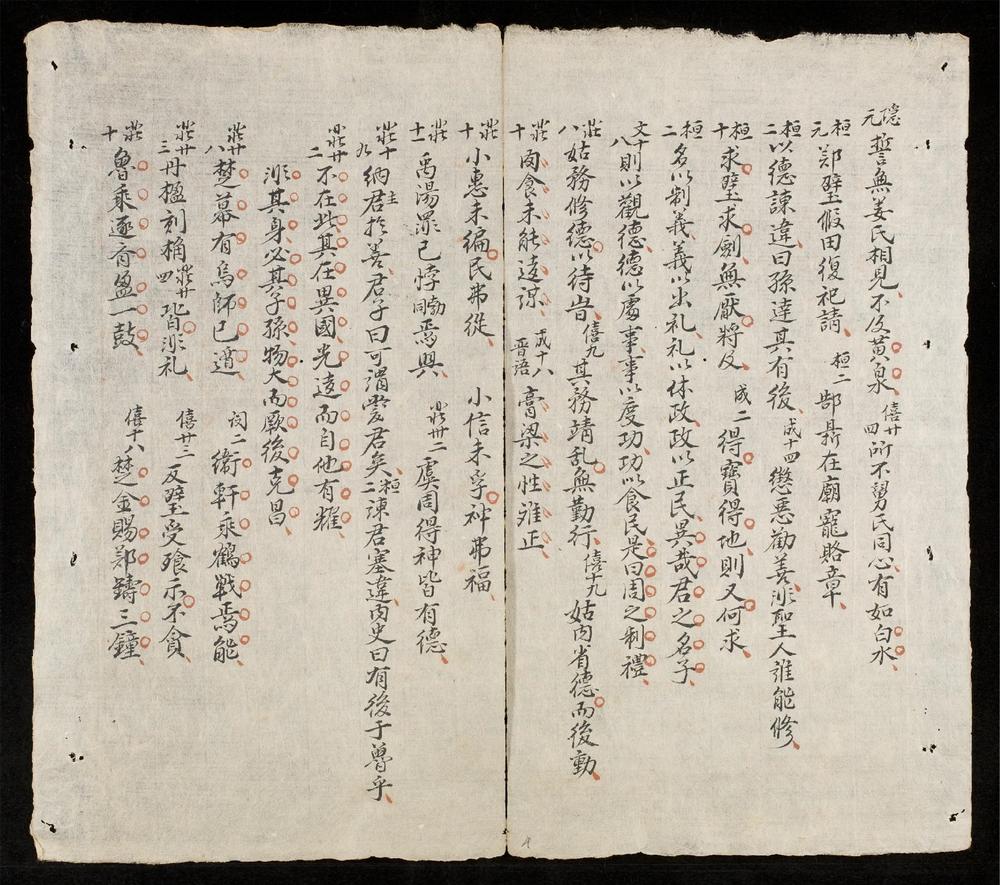 隱元 誓無姜氏相見不及黃泉 僖廿四 所不舅氏同心有如白水
桓元 郑璧假田復祀請 桓二 郜鼎在廟寵賂章
桓二 以德諫違曰孫達其有後 成十四 懲惡勸善非聖人誰能修
桓十 求璧求劍無厭將及 成二 得寶得地則又何求
桓二 名以制義義以出礼礼以体政政以正民異哉君之名子
文十八 則以觀德德以處事事以度功功以食民是曰周之制禮
莊八 姑務修德以待旹 僖九 其務靖乱無勤行 僖十九 姑内省德而後動
莊十 肉食未能遠谋 成十八 晋语 膏梁之性难正
莊十 小惠未徧民弗從 小信未孚神弗福
莊十一 禹湯罪己悖勃同焉興 莊卅二 虞周得神皆有德
莊十九 納君於善君子曰可謂爱君矣 桓二 諫君塞違内史曰有後于魯乎
莊廿二 不在此其在異國光遠而自他有耀
非其身必其子孫物大而厥後克昌
莊廿八 楚幕有烏師已遁 闵二 衞軒乘鶴戰焉能
莊廿三 丹楹刻桷 莊廿四 皆非礼 僖廿三 反璧受飱示不貪
莊十 魯乘逐齐盈一鼓 僖十八 楚金賜郑鑄三鐘